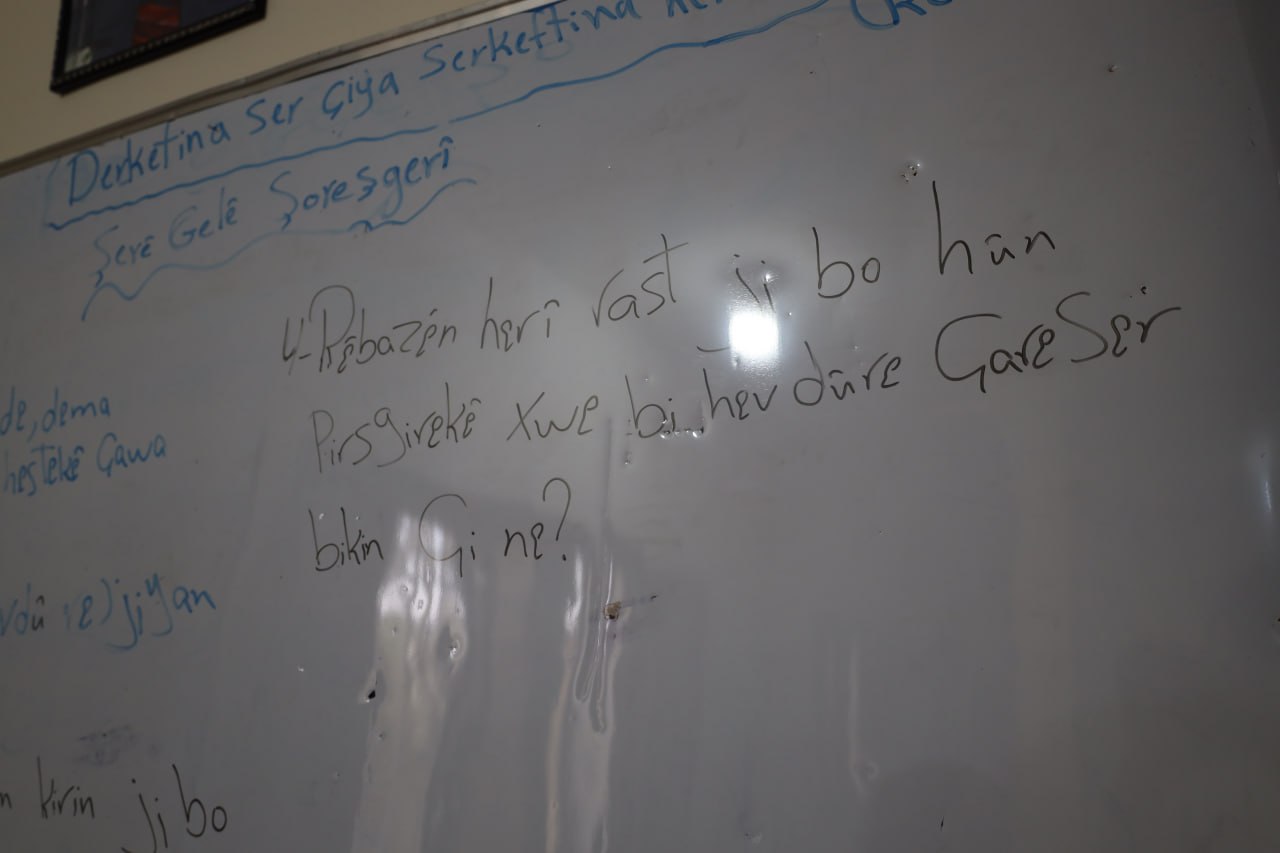 Derketina Ser Çiya Serkeftina
Şerê Gelê Şoreşgerî
4-Rêbazên herî rast ji bo hûn
Pirsgirekê xwe bi hevdûre Çareser
bikin Çi ne?
de, dema
heştekê Çawa
jiyan
kirin ji bo